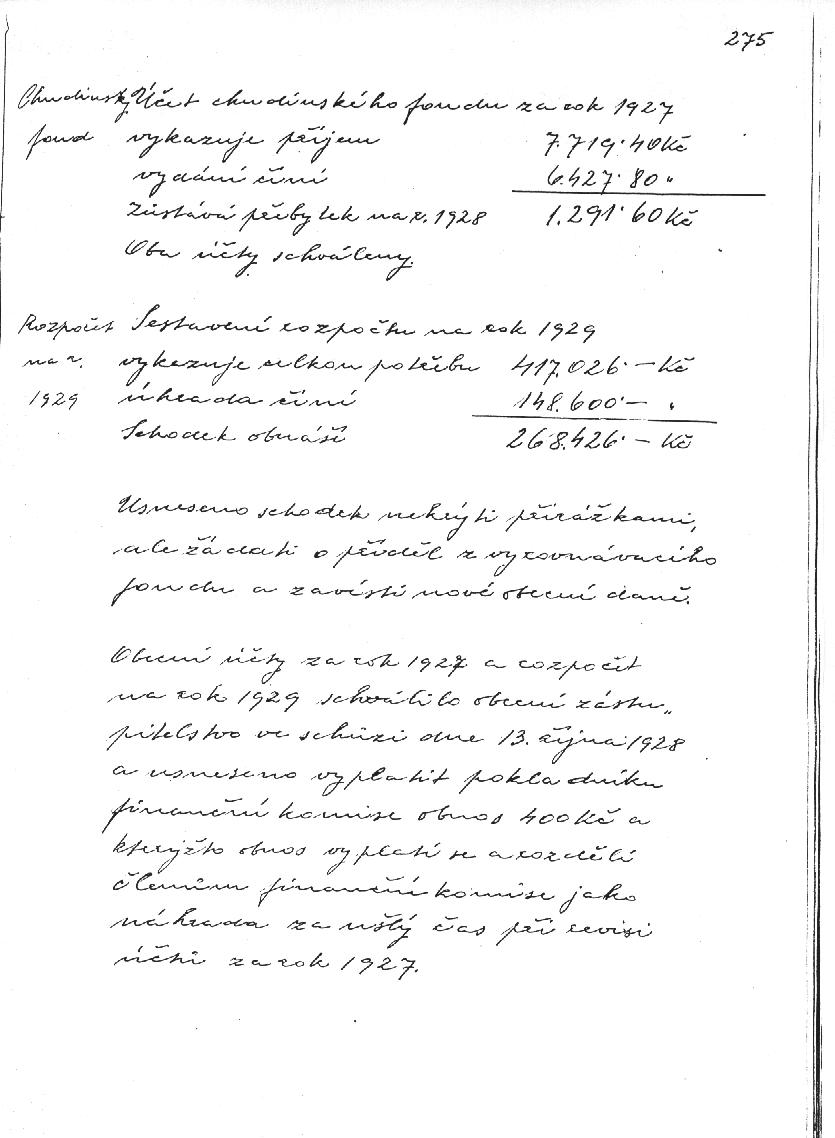 275
Chudinský Účet chudinského fondu za rok 1927
fond vykazuje příjem 7.719·40 Kč
vydání činí 6.427·80 "
Zůstává přebytek na r. 1928 1.291·60 Kč
Oba účty schváleny.
Rozpočet Sestavení rozpočtu na rok 1929
na r. vykazuje celkou potřebu 417.026·— Kč
1929 úhrada činí 148.600·— "
Schodek obnáší 268.426·— Kč
Usneseno schodek nekrýti přirážkami,
ale žádati o příděl z vyrovnávacího
fondu a zavésti nové obecní daně.
Obecní účty za rok 1927 a rozpočet
na rok 1929 schválilo obecní zastu„
pitelstvo ve schůzi dne 13. října 1928
a usneseno vyplatit pokladníku
finanční komise obnos 400 Kč a
kterýžto obnos vyplatí se a rozdělí
členům finanční komise jako
náhrada za ušlý čas při revisi
účtů za rok 1927.